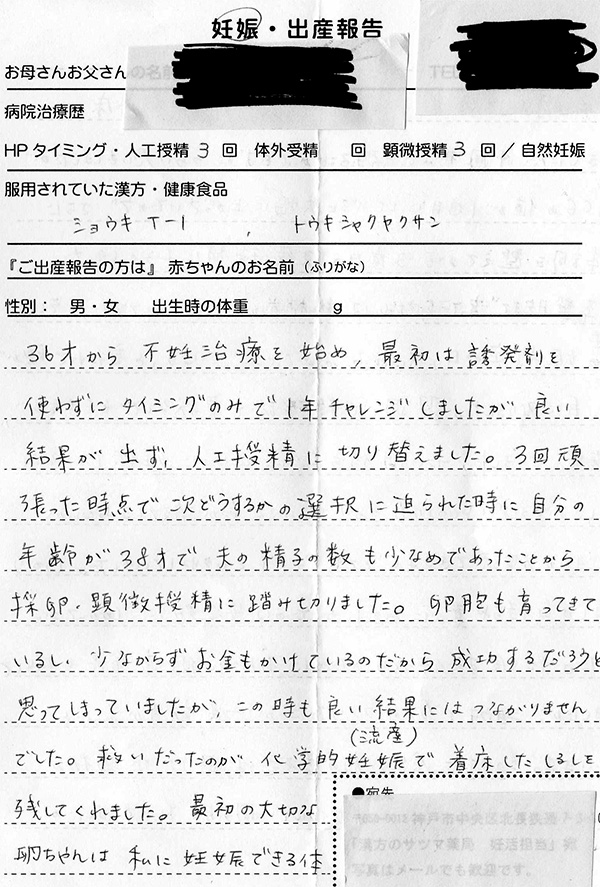 妊娠・出産報告
お母さんお父さんの名前
TEL
病院治療歴
HPタイミング・人工授精 3 回 体外受精 回 顕微授精 3 回／自然妊娠
服用されていた漢方・健康食品
ショウキT-1 , トウキシャクヤクサン
『ご出産報告の方は』赤ちゃんのお名前（ふりがな）
性別： 男・女 出生時の体重 g
36才から 不妊治療を始め, 最初は誘発剤を
使わずに タイミングのみで 1年チャレンジしましたが 良い
結果が 出ず, 人工授精に 切り替えました。3回頑
張った時点で 次どうするかの選択に迫られた時に 自分の
年齢が38才で 夫の精子の数も少なめであったことから
採卵・顕微授精に 踏み切りました。卵胞も育ってきて
いるし 少なからず お金もかけているのだから 成功するだろうと
思ってしまっていましたが, この時も良い結果にはつながりません
でした。救いだったのが 化学的妊娠(流産)で 着床したしるしを
残してくれました。最初の大切な
卵ちゃんは 私に妊娠できる体
●宛先
神戸市中央区北長狭通
「漢方のサツマ薬局 妊活担当」宛
写真はメールでも歓迎です。